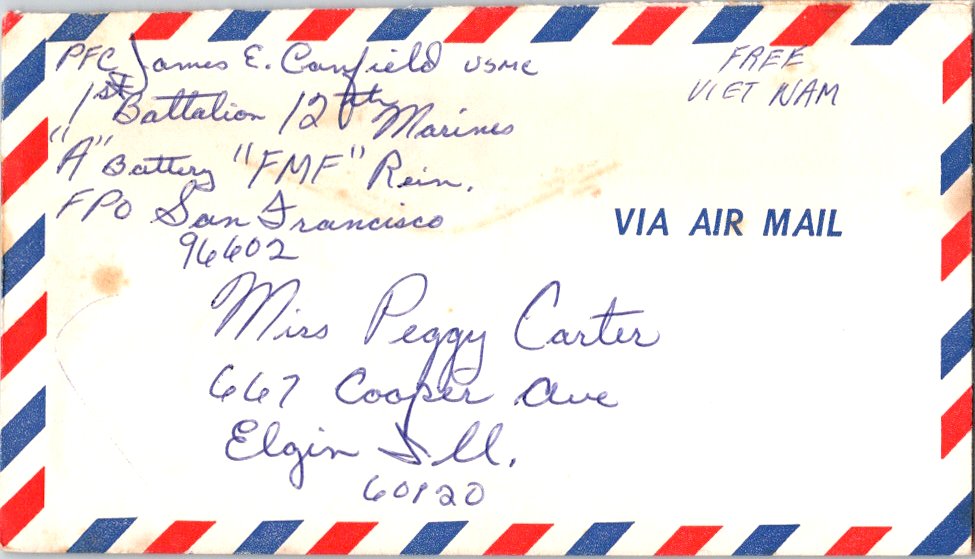 PFC James E. Canfield USMC
1st Battalion 12th Marines
"A" Battery "FMF" Rein.
FPO San Francisco
96602
FREE
VIET NAM
VIA AIR MAIL
Miss Peggy Carter
667 Cooper Ave
Elgin Ill.
60120